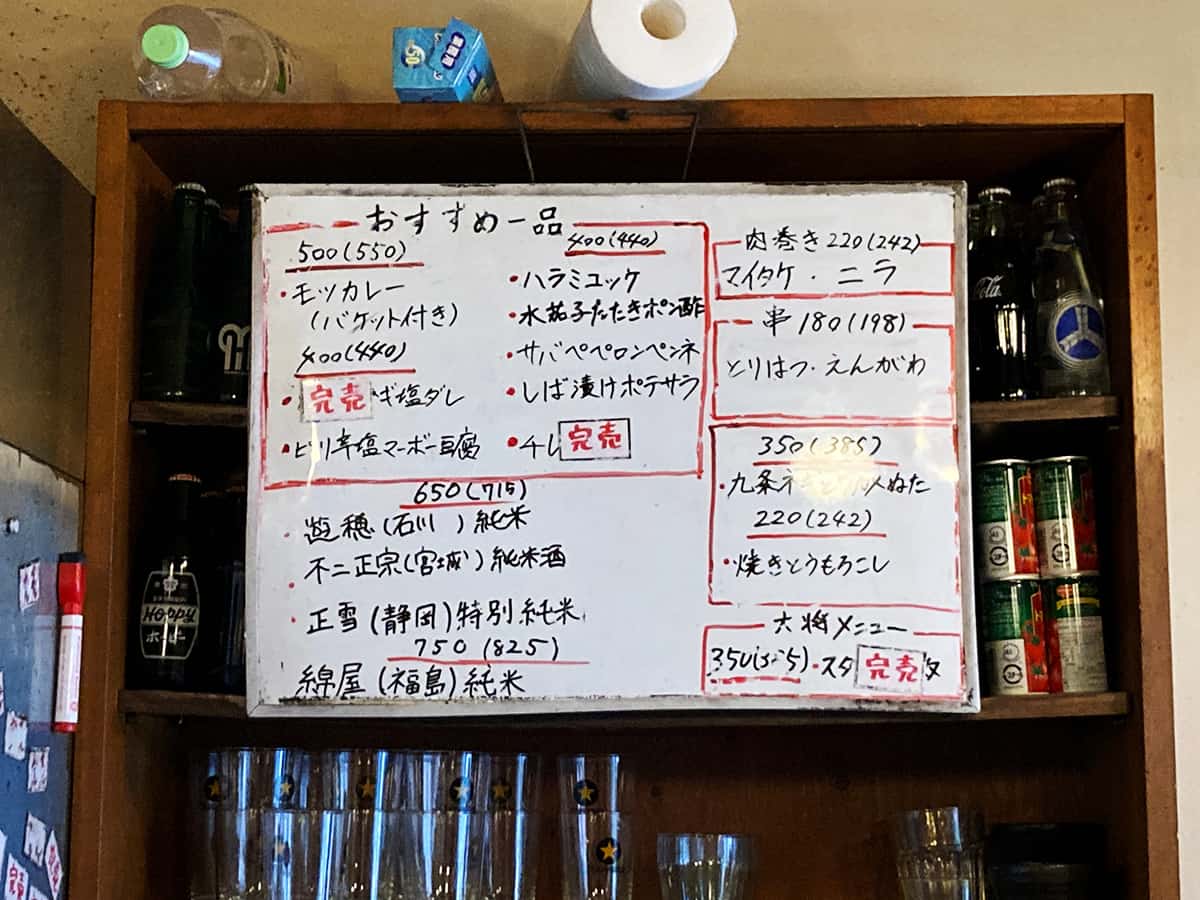 おすすめ一品
500(550)
・モツカレー
(バケット付き)
400(440)
・完売ギ塩ダレ
・ピリ辛塩マーボー豆腐
400(440)
・ハラミユッケ
・水茄子たたきポン酢
・サバペペロンペンネ
・しば漬けポテサラ
・チレ完売
650(715)
・遊穂(石川)純米
・不二正宗(宮城)純米酒
・正雪(静岡)特別純米
750(825)
綿屋(福島)純米
肉巻き220(242)
マイタケ・ニラ
串180(198)
とりはつ・えんがわ
350(385)
・九条ネギと ぬた
220(242)
・焼きとうもろこし
大将メニュー
・スタ完売
Hoppy
ホッピー
Cola
完売